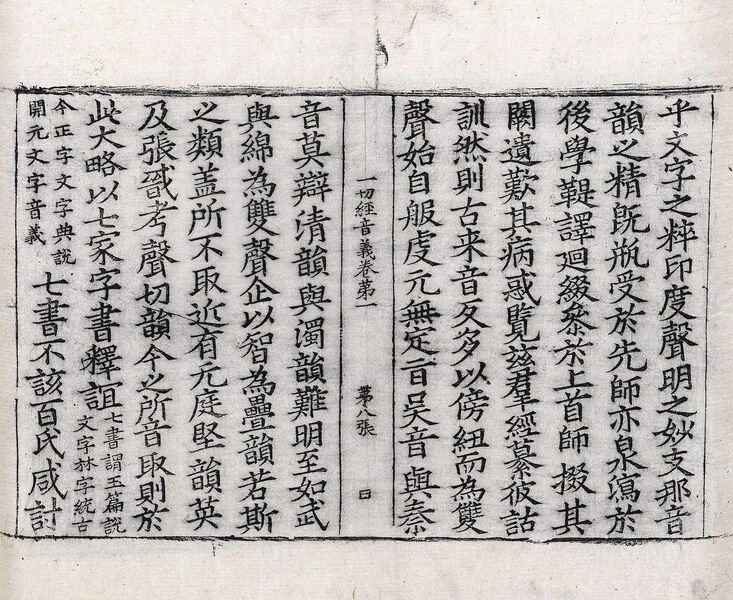 乎文字之粹印度聲明之妙支那音
韻之精旣瓶受於先師亦泉瀉於
後學鞮譯迴綴叅於上首師掇其
闕遺歎其病惑覽兹羣經纂彼詁
訓然則古来音反多以傍紐而為雙
聲始自服虔元無定旨吳音與秦
一切經音義卷第一 第八張 日
音莫辯清韻與濁韻難明至如武
與綿為雙聲企以智為疊韻若斯
之類盖所不取近有元庭堅韻英
及張戩考聲切韻今之所音取則於
此大略以七家字書釋誼
七書謂玉篇說
文字林字統古
今正字文字典說
開元文字音義
七書不該百氏咸討